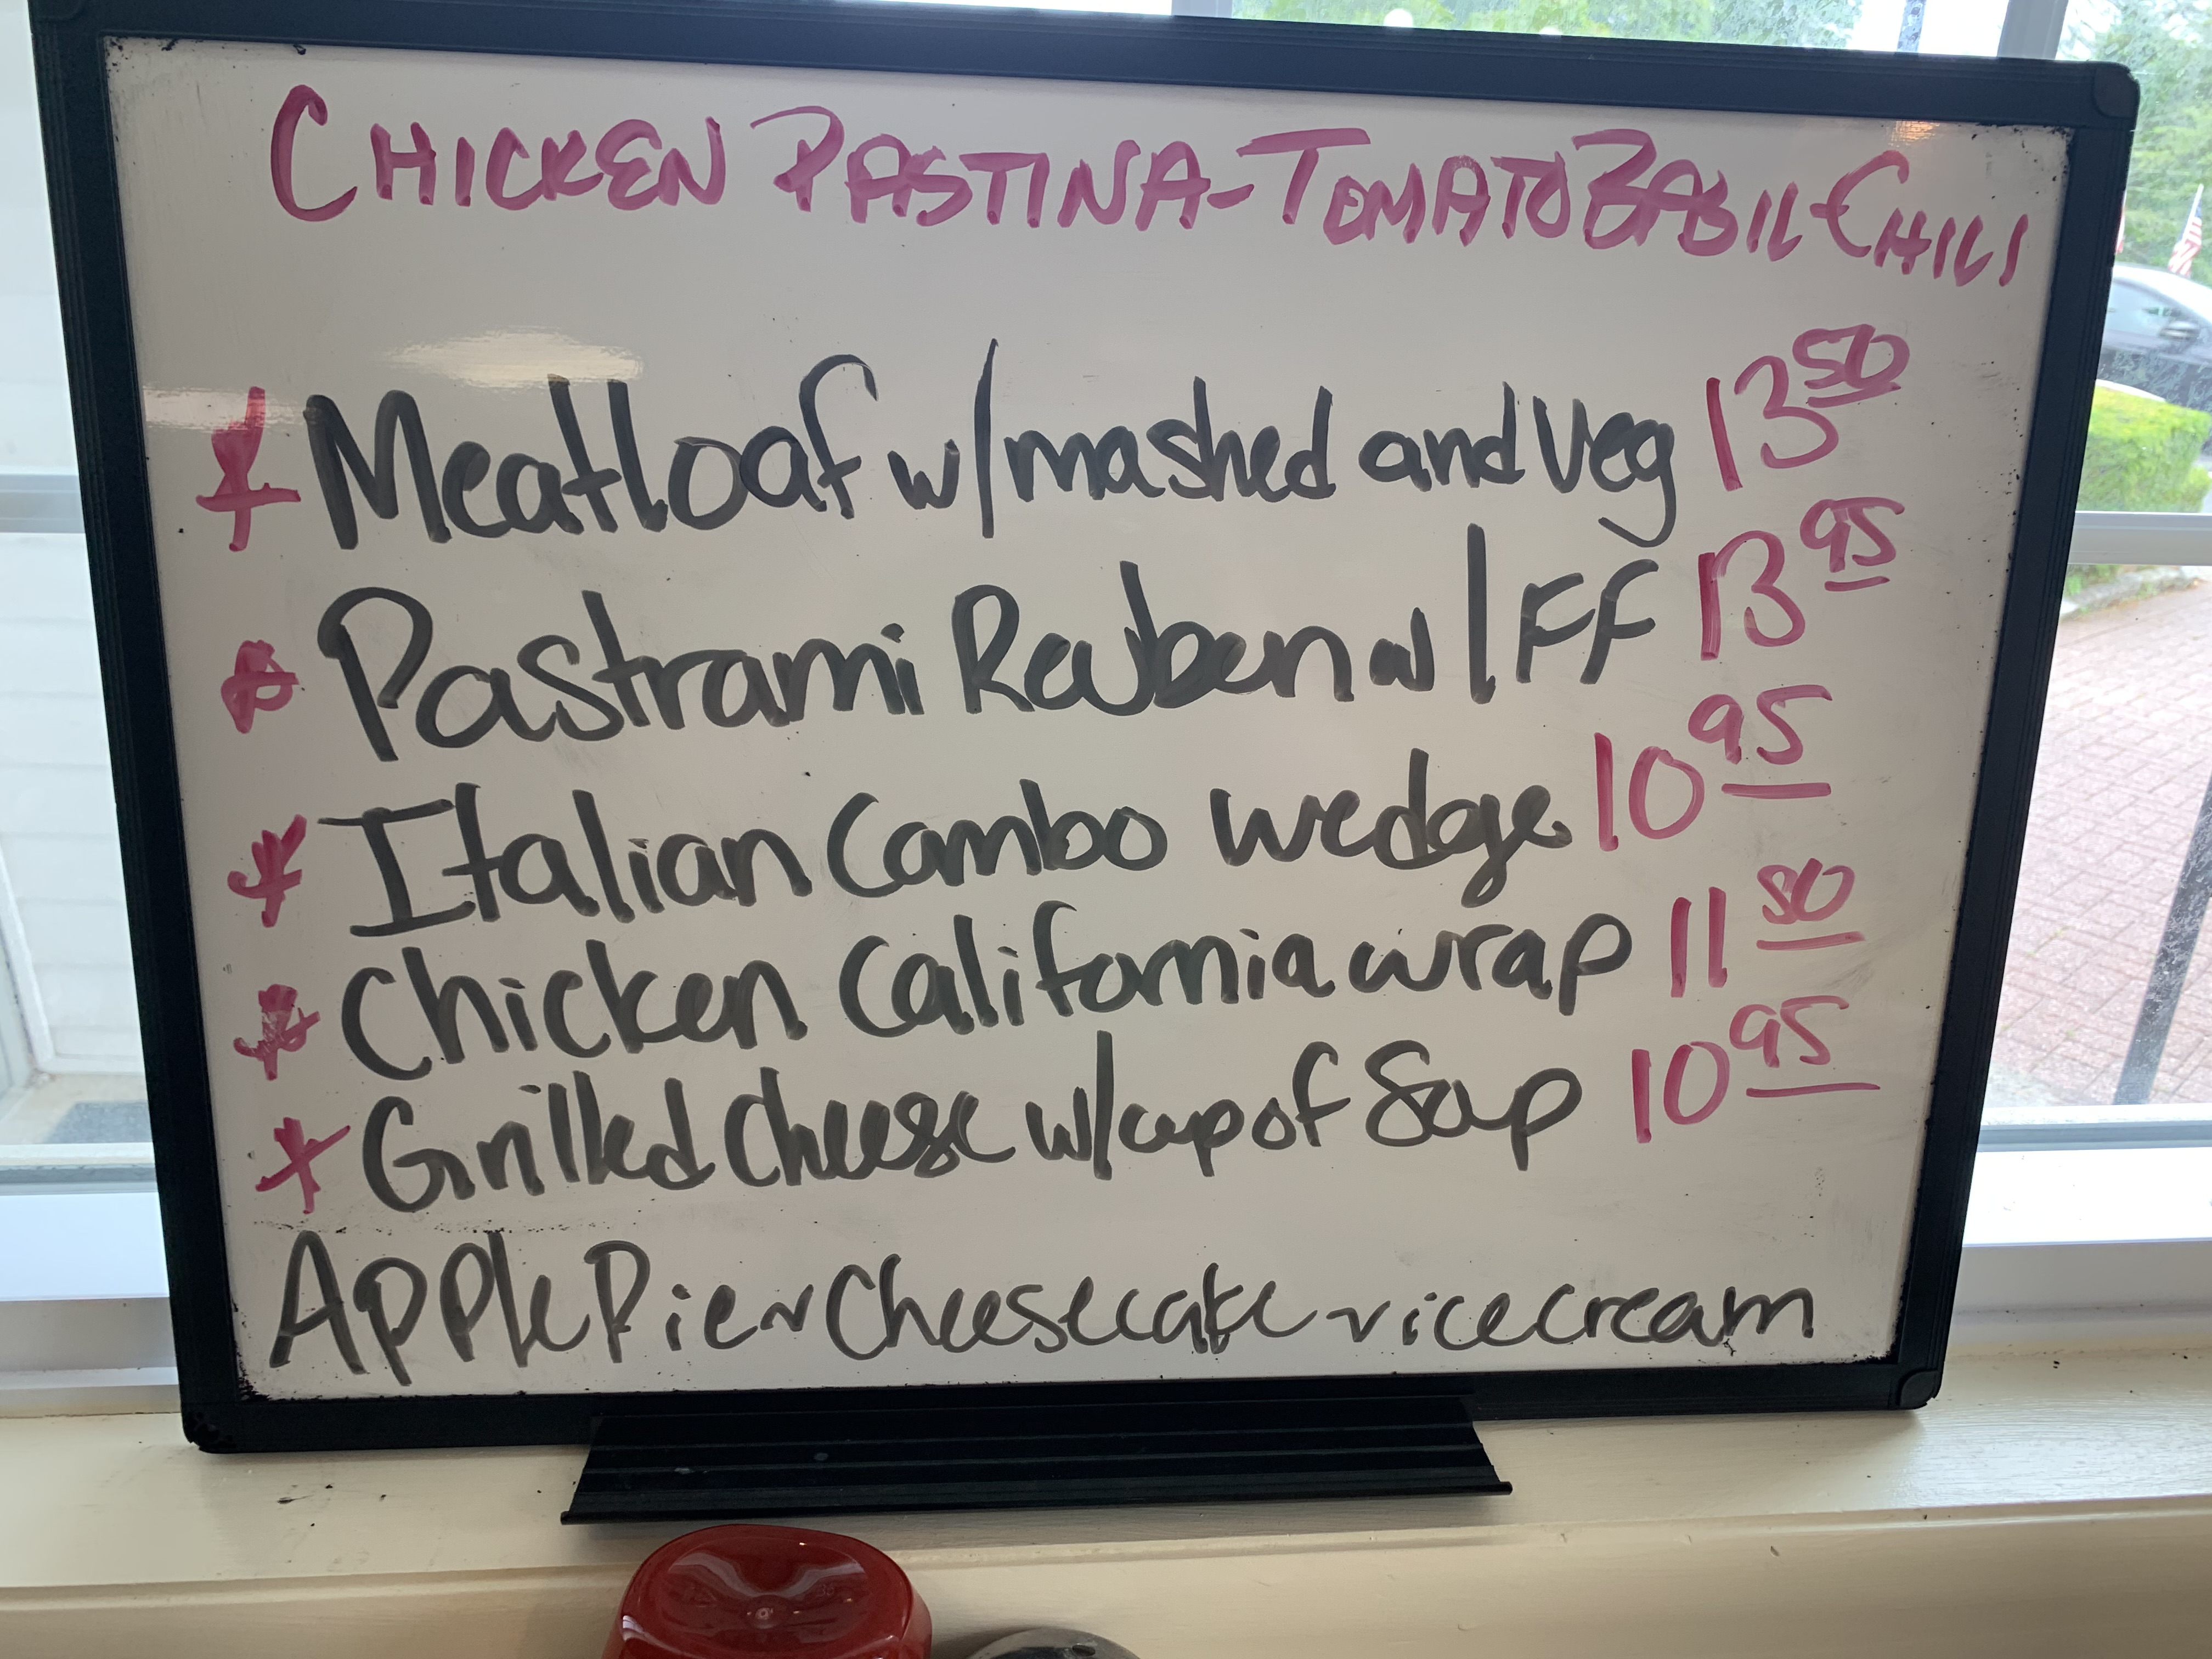 CHICKEN PASTINA-TOMATO BABIL-CHILI
* Meatloaf w/mashed and Veg 13 50
* Pastrami Reuben w/FF 13 95
* Italian Combo wedge 10 95
* Chicken California wrap 11 50
* Grilled Cheese w/cup of Soup 10 95
Apple Pie ~ Cheesecake ~ ice cream